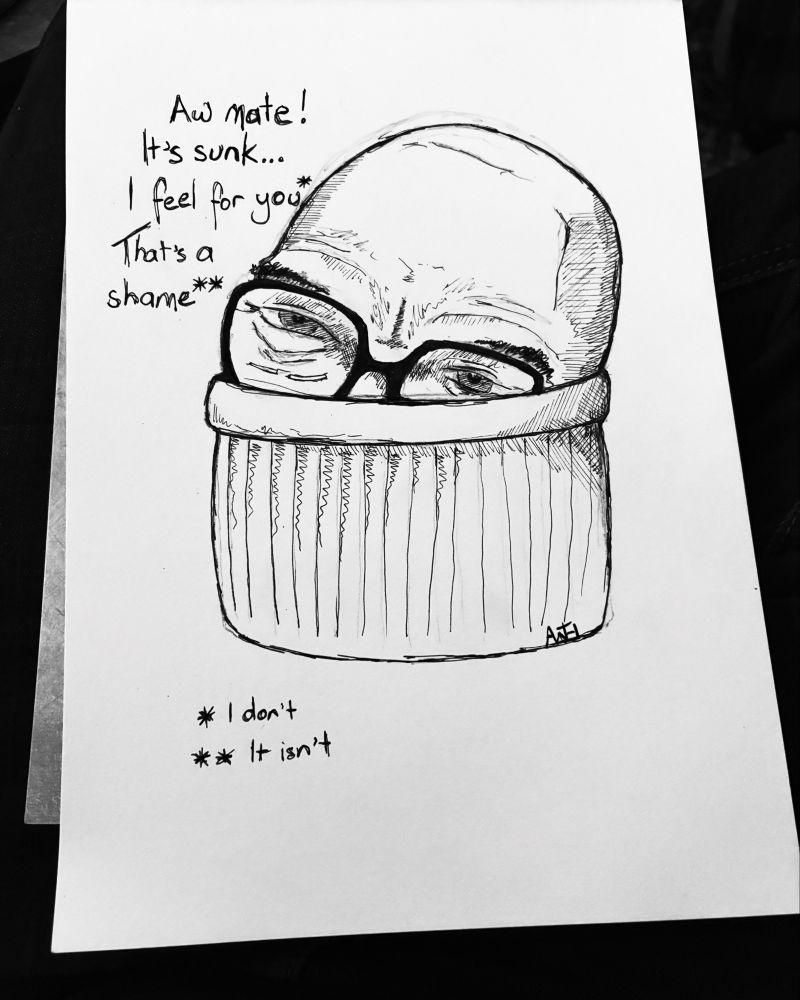 Aw mate!
It's sunk...
I feel for you*
That's a
shame**
* I don't
** It isn't